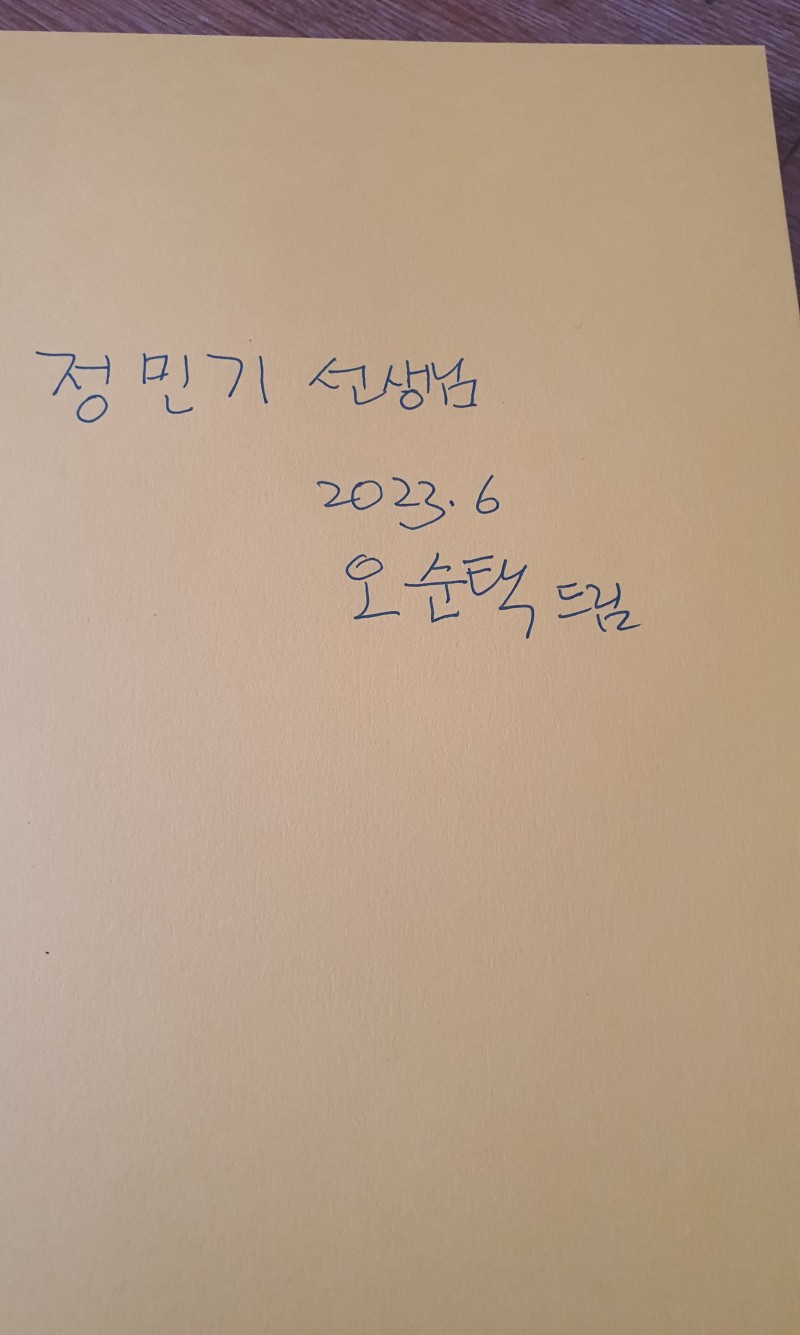 정민기 선생님
2023. 6
오순택 드림